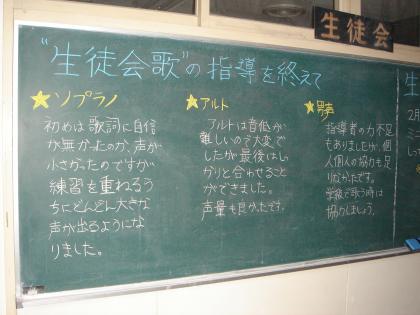 生徒会
"生徒会歌"の指導を終えて
★ソプラノ
初めは歌詞に自信
が無かったのか、声が
小さかったのですが
練習を重ねるう
ちにどんどん大きな
声が出るようにな
りました。
★アルト
アルトは音低が
難しいので大変で
したが最後はしっ
かりと合わせること
ができました。
声量も良かったです。
★男声
指導者の力不足
もありましたが、個
人個人の協力も足
りなかったです。
学級で歌う時は
協力しましょう。
生
2月
しっ